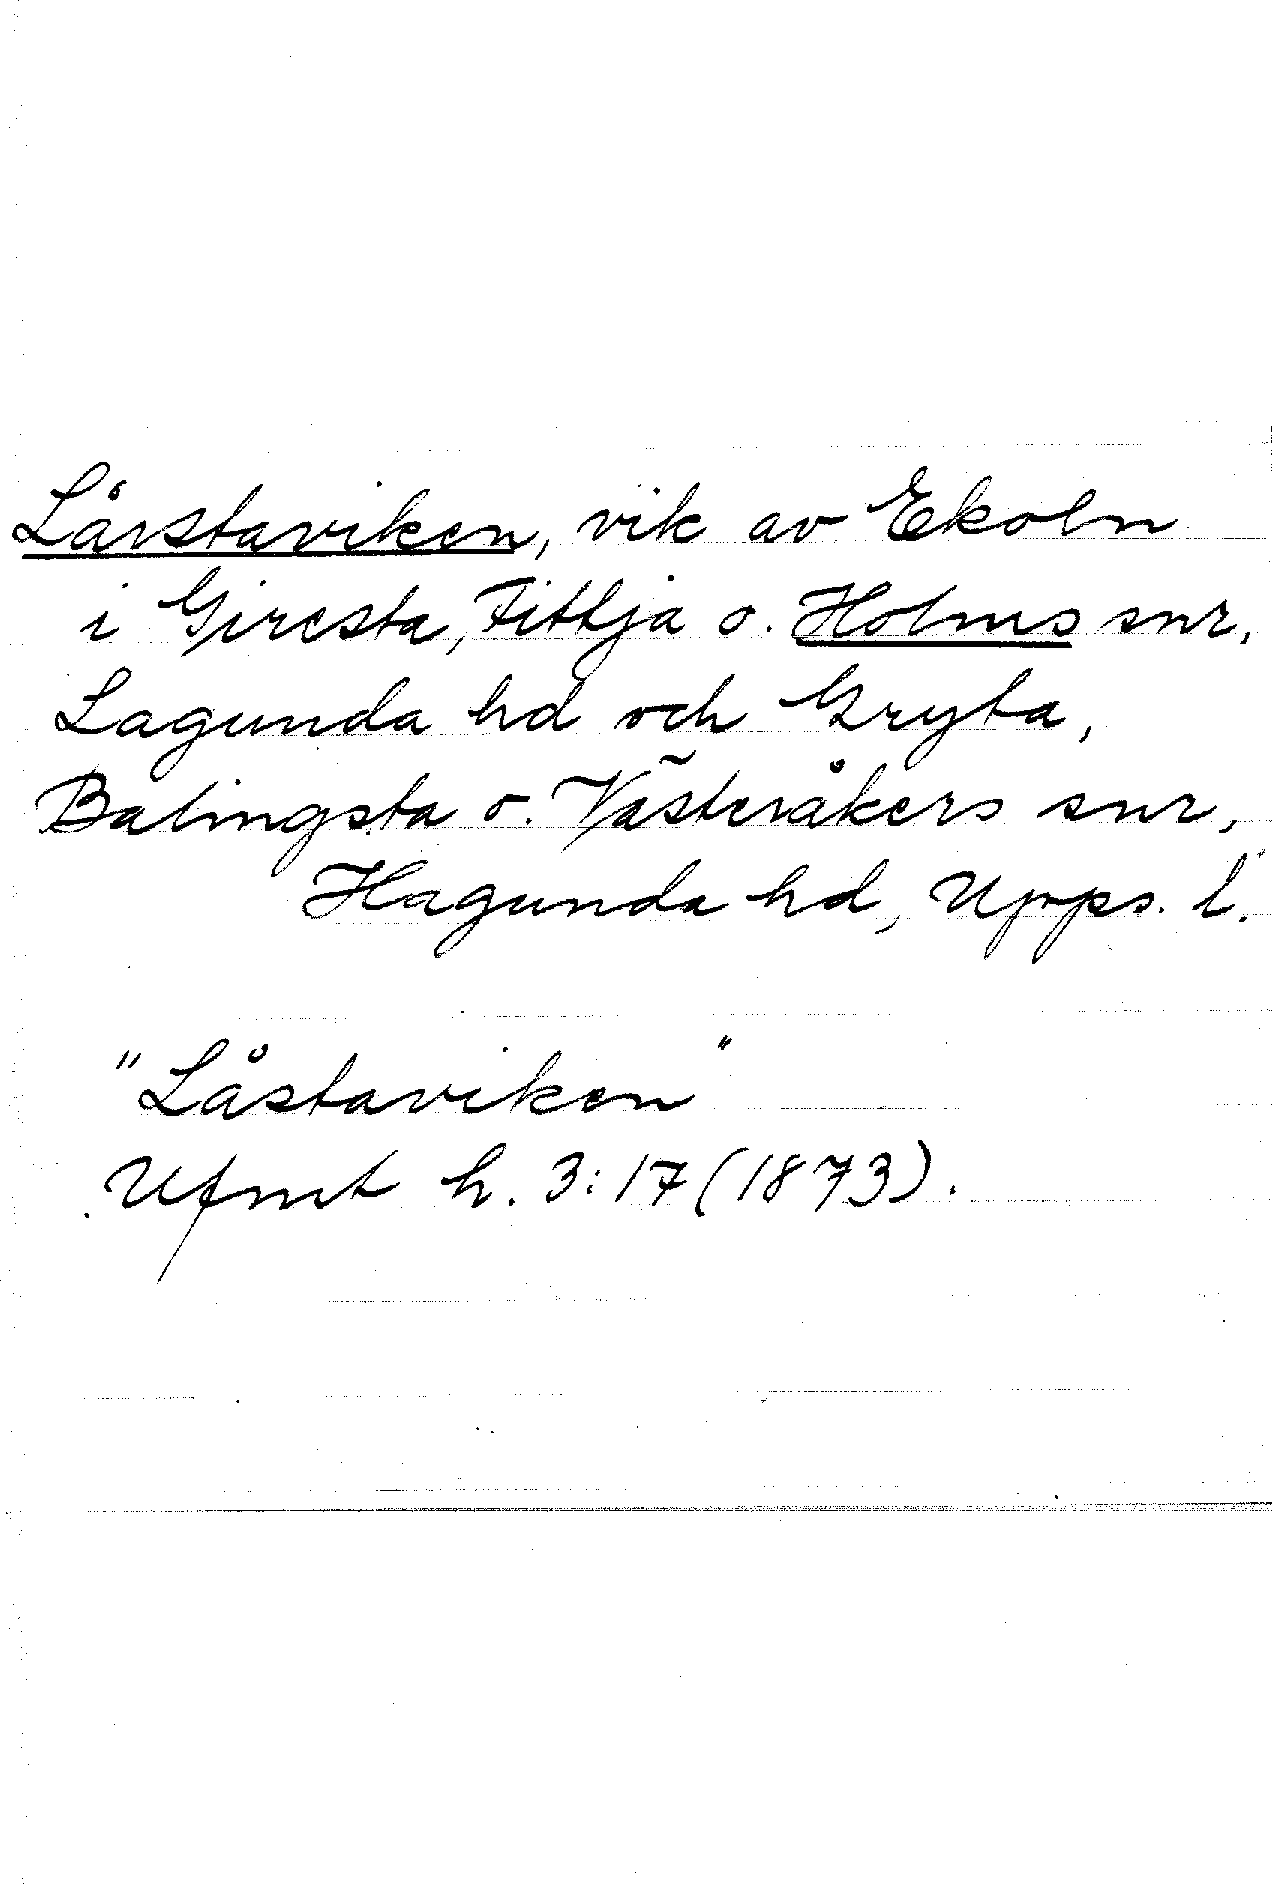 Lårstaviken, vik av Ekoln
i Giresta, Fittja o. Holms snr,
Lagunda hd och Gryta,
Balingsta o. Västeråkers snr,
Hagunda hd, Upps. l.
"Låstaviken"
Ufmt h. 3:17 (1873).